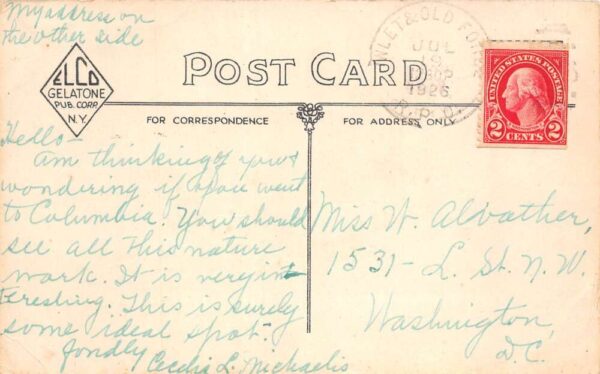 My address on
the other side
ELCO
GELATONE
PUB. CORP.
N.Y.
POST CARD
FOR CORRESPONDENCE
FOR ADDRESS ONLY
INLET & OLD FORGE
JUL
1926
R.P.O.
UNITED STATES POSTAGE
2 CENTS 2
Hello-
Am thinking of you &
wondering if you went
to Columbia. You should
see all this nature
work. It is very in-
teresting. This is surely
some ideal spot.
fondly
Cecilia L. Michaelis
Miss W. Alvather,
1531- L. St. N.W.
Washington,
D.C.